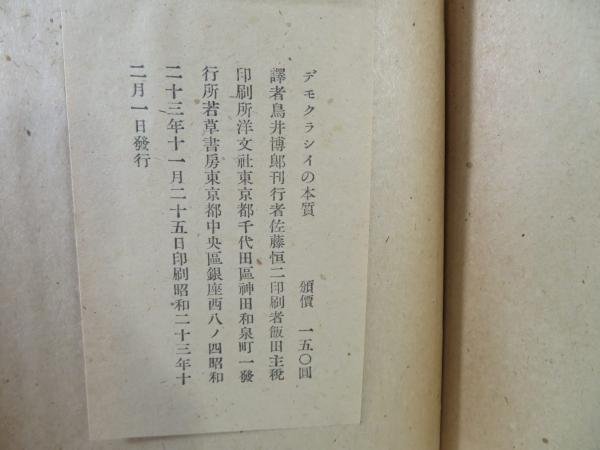 デモクラシイの本質 頒價 一五〇圓
譯者鳥井博郎刊行者佐藤恒二印刷者飯田主税
印刷所洋文社東京都千代田區神田和泉町一發
行所若草書房東京都中央區銀座西八ノ四昭和
二十三年十一月二十五日印刷昭和二十三年十
二月一日發行